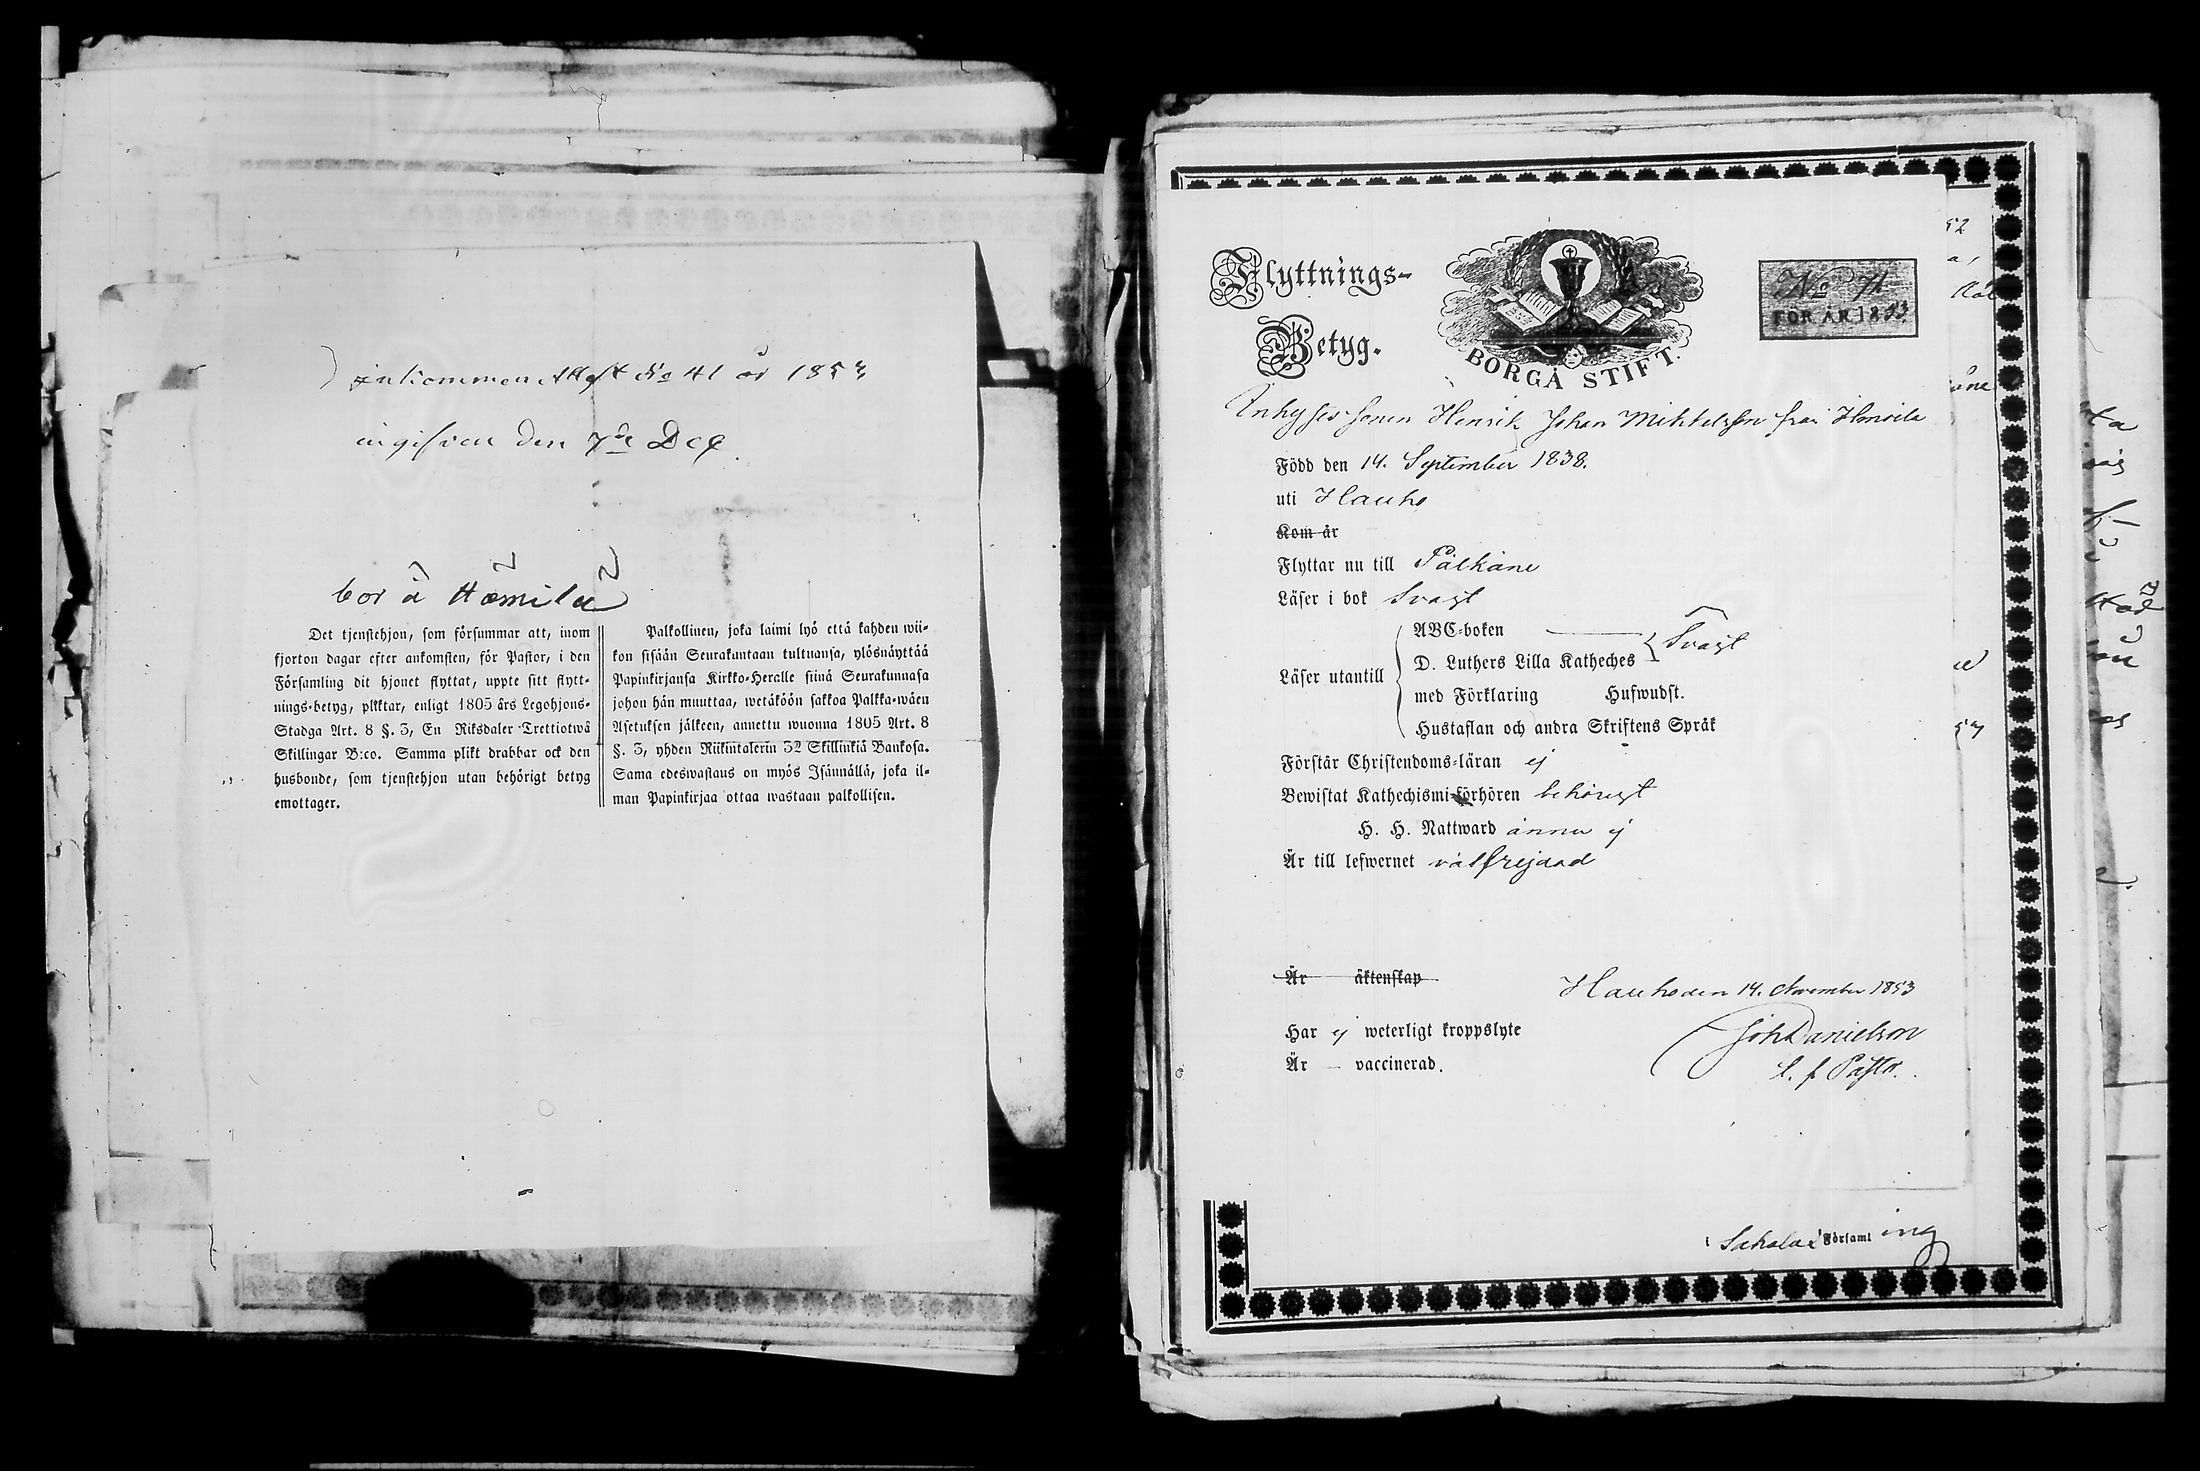 Inkommen Attest No 41 år 1853
ingifven den 7de Dec.
bor å Hämilä
Det tjenstehjon, som försummar att, inom
fjorton dagar efter ankomsten, för Pastor, i den
Församling dit hjonet flyttat, uppte sitt flytt-
nings-betyg, pliktar, enligt 1805 års Legohjons-
Stadga Art. 8 §. 3, En Riksdaler Trettiotwå
Skillingar B:co. Samma plikt drabbar ock den
husbonde, som tjenstehjon utan behörigt betyg
emottager.
Palkollinen, joka laimi lyö että kahden wii-
kon sisään Seurakuntaan tultuansa, ylösnäyttää
Papinkirjansa Kirkko-Heralle siinä Seurakunnasa
johon hän muuttaa, wetäköön sakkoa Palkka-wäen
Asetuksen jälkeen, annettu wuonna 1805 Art. 8
§. 3, yhden Riikintalerin 32 Skillinkiä Bankosa.
Sama edeswastaus on myös Isännällä, joka il-
man Papinkirjaa ottaa wastaan palkollisen.
Flyttnings-
Betyg.
BORGÅ STIFT.
No 71
FÖR ÅR 1853.
Inhyses sonen Henrik Johan Mikkelsson från Hmoila
Född den 14. September 1838.
uti Hauho
Kom år
Flyttar nu till Pälkäne
Läser i bok Svagt
Läser utantill
ABC-boken
D. Luthers Lilla Katheches
Svagt
med Förklaring Hufwudst.
Hustaflan och andra Skriftens Språk
Förstår Christendoms-läran ej
Bewistat Kathechismi-förhören behörigt
H. H. Nattward ännu ej
Är till lefwernet välfrejdad
Är äktenskap
Hauho den 14. November 1853
Har ej weterligt kroppslyte
Joh Danielson
Är — vaccinerad.
t. f. Pastor.
i Sahalax Församling